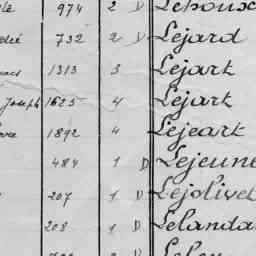 974 2 D Lehoux
732 2 D Lejard
1313 3 Lejart
Joseph 1625 4 Lejart
1892 4 Lejeart
484 1 D Lejeune
207 1 D Lejolivet
208 1 D Lelanda